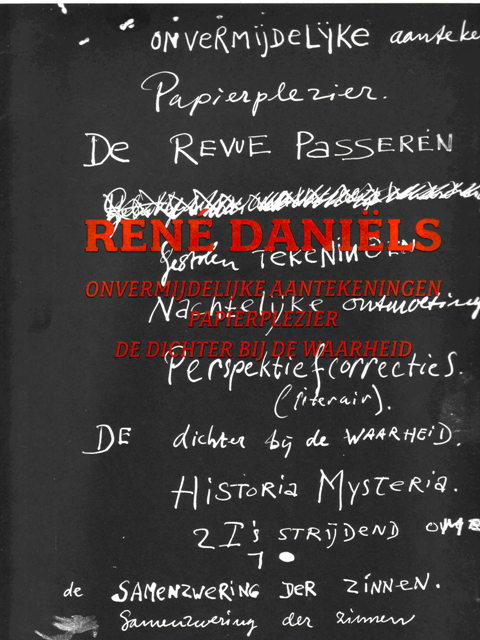 ONVERMIJDELIJKE aanteke
Papierplezier.
De REVUE PASSEREN
RENÉ DANIËLS
gestolen TEKENINGEN
ONVERMIJDELIJKE AANTEKENINGEN
Nachtelijke ontmoeting
PAPIERPLEZIER
DE DICHTER BIJ DE WAARHEID
Perspektiefcorrecties.
(literair).
DE dichter bij de WAARHEID.
HISTORIA MYSTERIA.
2 I's STRIJDEND OM
1
de SAMENZWERING DER ZINNEN.
Samenzwering der zinnen